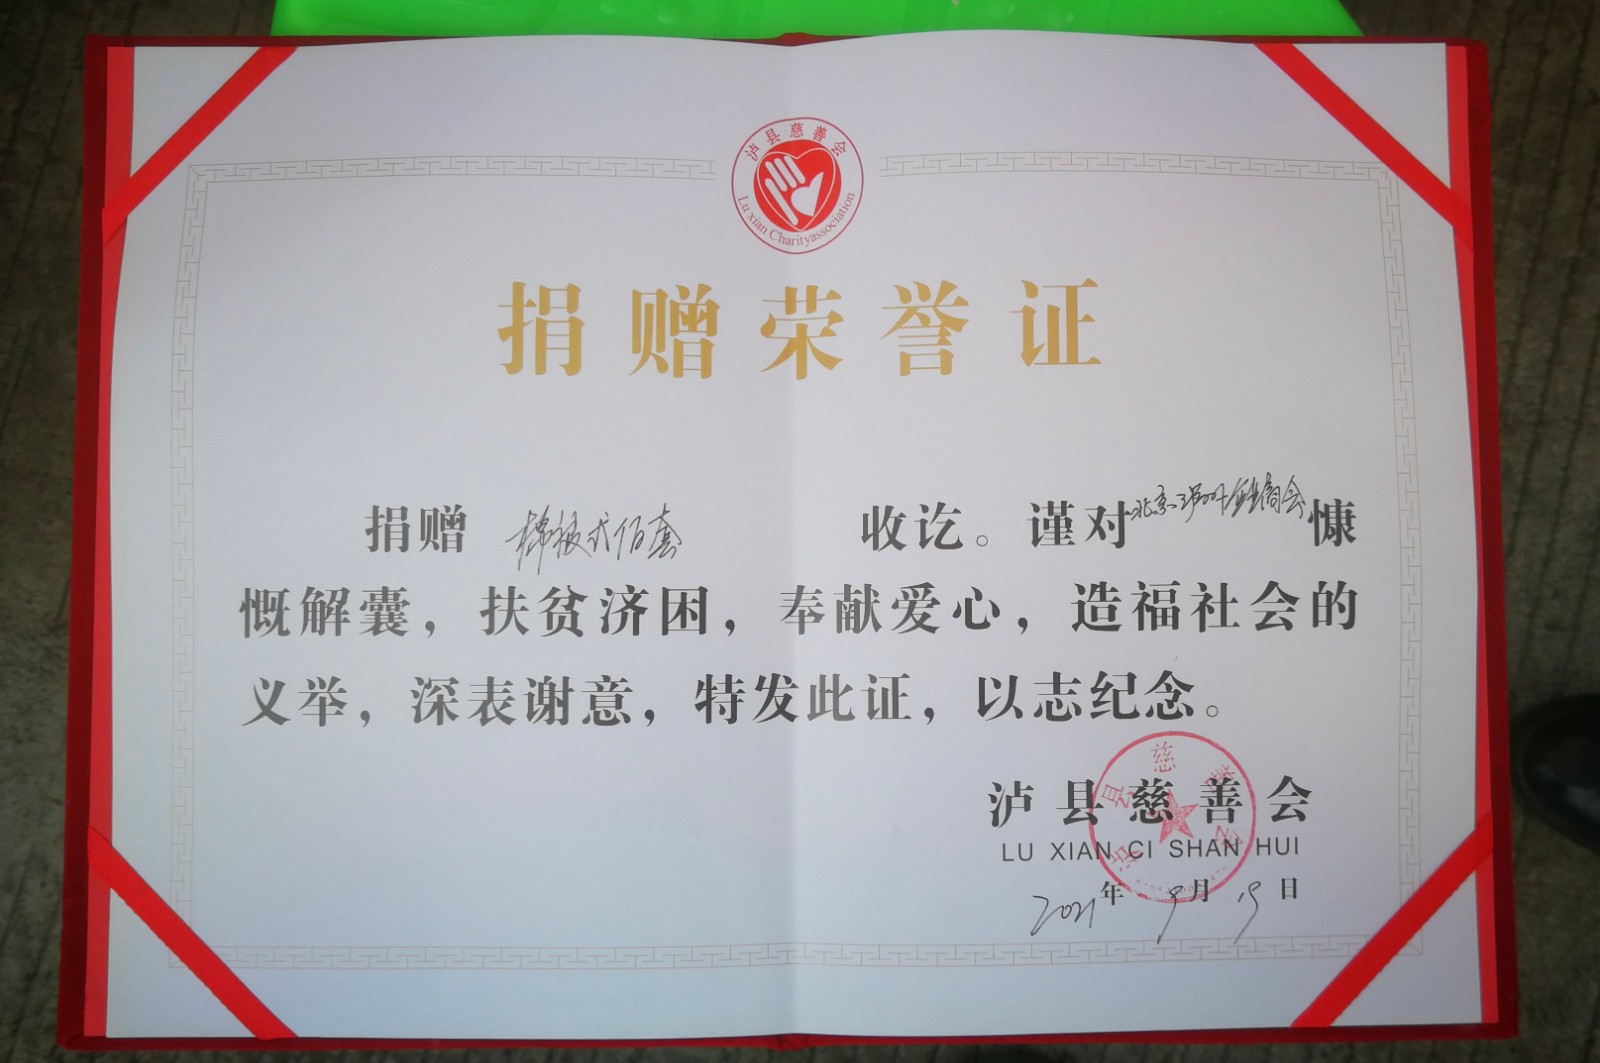 泸县慈善会
Lu xian Charityassociation
捐赠荣誉证
捐赠 棉被贰佰套 收讫。谨对北京泸州企业商会慷
慨解囊，扶贫济困，奉献爱心，造福社会的
义举，深表谢意，特发此证，以志纪念。
泸县慈善会
泸县慈善会
LU XIAN CI SHAN HUI
2021年9月19日